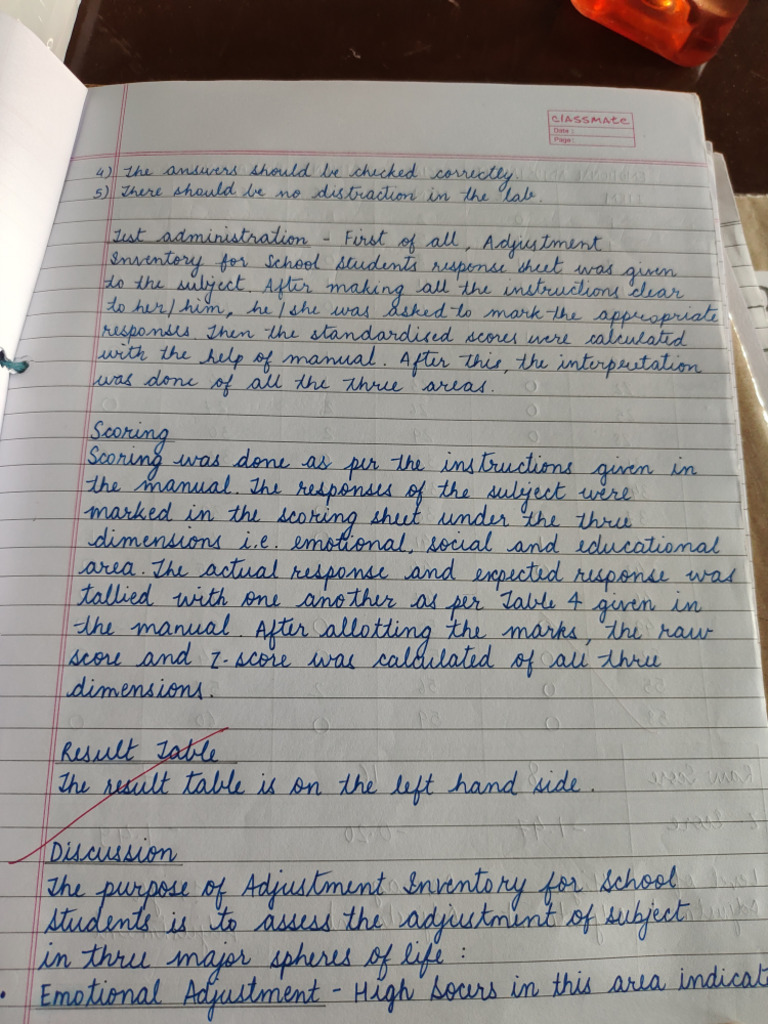 classmate
Date :
Page :
4) The answers should be checked correctly.
5) There should be no distraction in the lab.
Test administration - First of all, Adjustment
Inventory for School Students response sheet was given
to the subject. After making all the instructions clear
to her/him, he/she was asked to mark the appropriate
responses. Then the standardised scores were calculated
with the help of manual. After this, the interpretation
was done of all the three areas.
Scoring
Scoring was done as per the instructions given in
the manual. The responses of the subject were
marked in the scoring sheet under the three
dimensions i.e. emotional, social and educational
area. The actual response and expected response was
tallied with one another as per Table 4 given in
the manual. After allotting the marks, the raw
score and z-score was calculated of all three
dimensions.
Result Table
The result table is on the left hand side.
Discussion
The purpose of Adjustment Inventory for School
Students is to assess the adjustment of subject
in three major spheres of life :
• Emotional Adjustment - High Socers in this area indicat